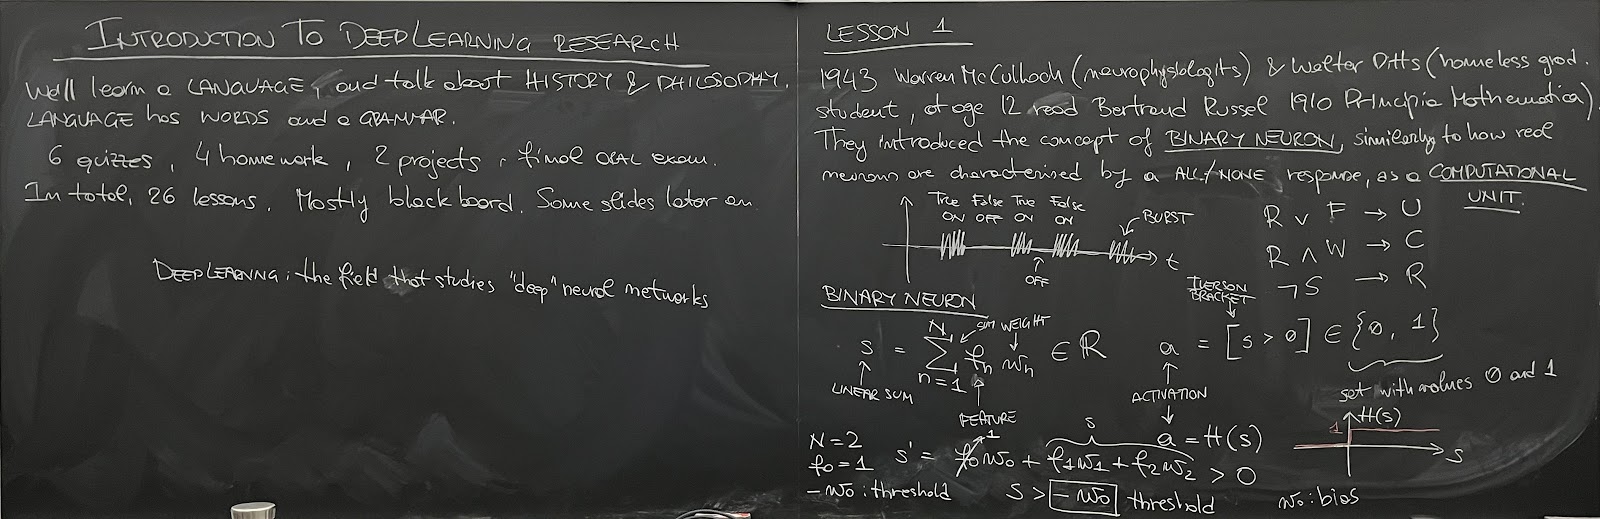 INTRODUCTION TO DEEP LEARNING RESEARCH
We'll learn a LANGUAGE, and talk about HISTORY & PHILOSOPHY.
LANGUAGE has WORDS and a GRAMMAR.
6 quizzes, 4 homework, 2 projects, final ORAL exam.
In total, 26 lessons. Mostly blackboard. Some slides later on.
DEEP LEARNING: the field that studies "deep" neural networks
LESSON 1
1943 Warren McCulloch (neurophysiologits) & Walter Pitts (homeless grad.
student, at age 12 read Bertrand Russel 1910 Principia Mathematica).
They introduced the concept of BINARY NEURON, similarly to how real
neurons are characterised by a ALL/NONE response, as a COMPUTATIONAL
UNIT.
True False True False
ON OFF ON ON
BURST
t
OFF
R ∨ F → U
R ∧ W → C
¬ S → R
IVERSON
BRACKET
BINARY NEURON
SUM WEIGHT
s = ∑ₙ₌₁ᴺ fₙ wₙ ∈ ℝ
a = [s > 0] ∈ {0, 1}
LINEAR SUM
FEATURE
ACTIVATION
set with values 0 and 1
a = H(s)
H(s)
1
s
N=2
f₀=1
-w₀: threshold
s
1
s' = f₀w₀ + f₁w₁ + f₂w₂ > 0
s > -w₀ threshold
w₀: bias